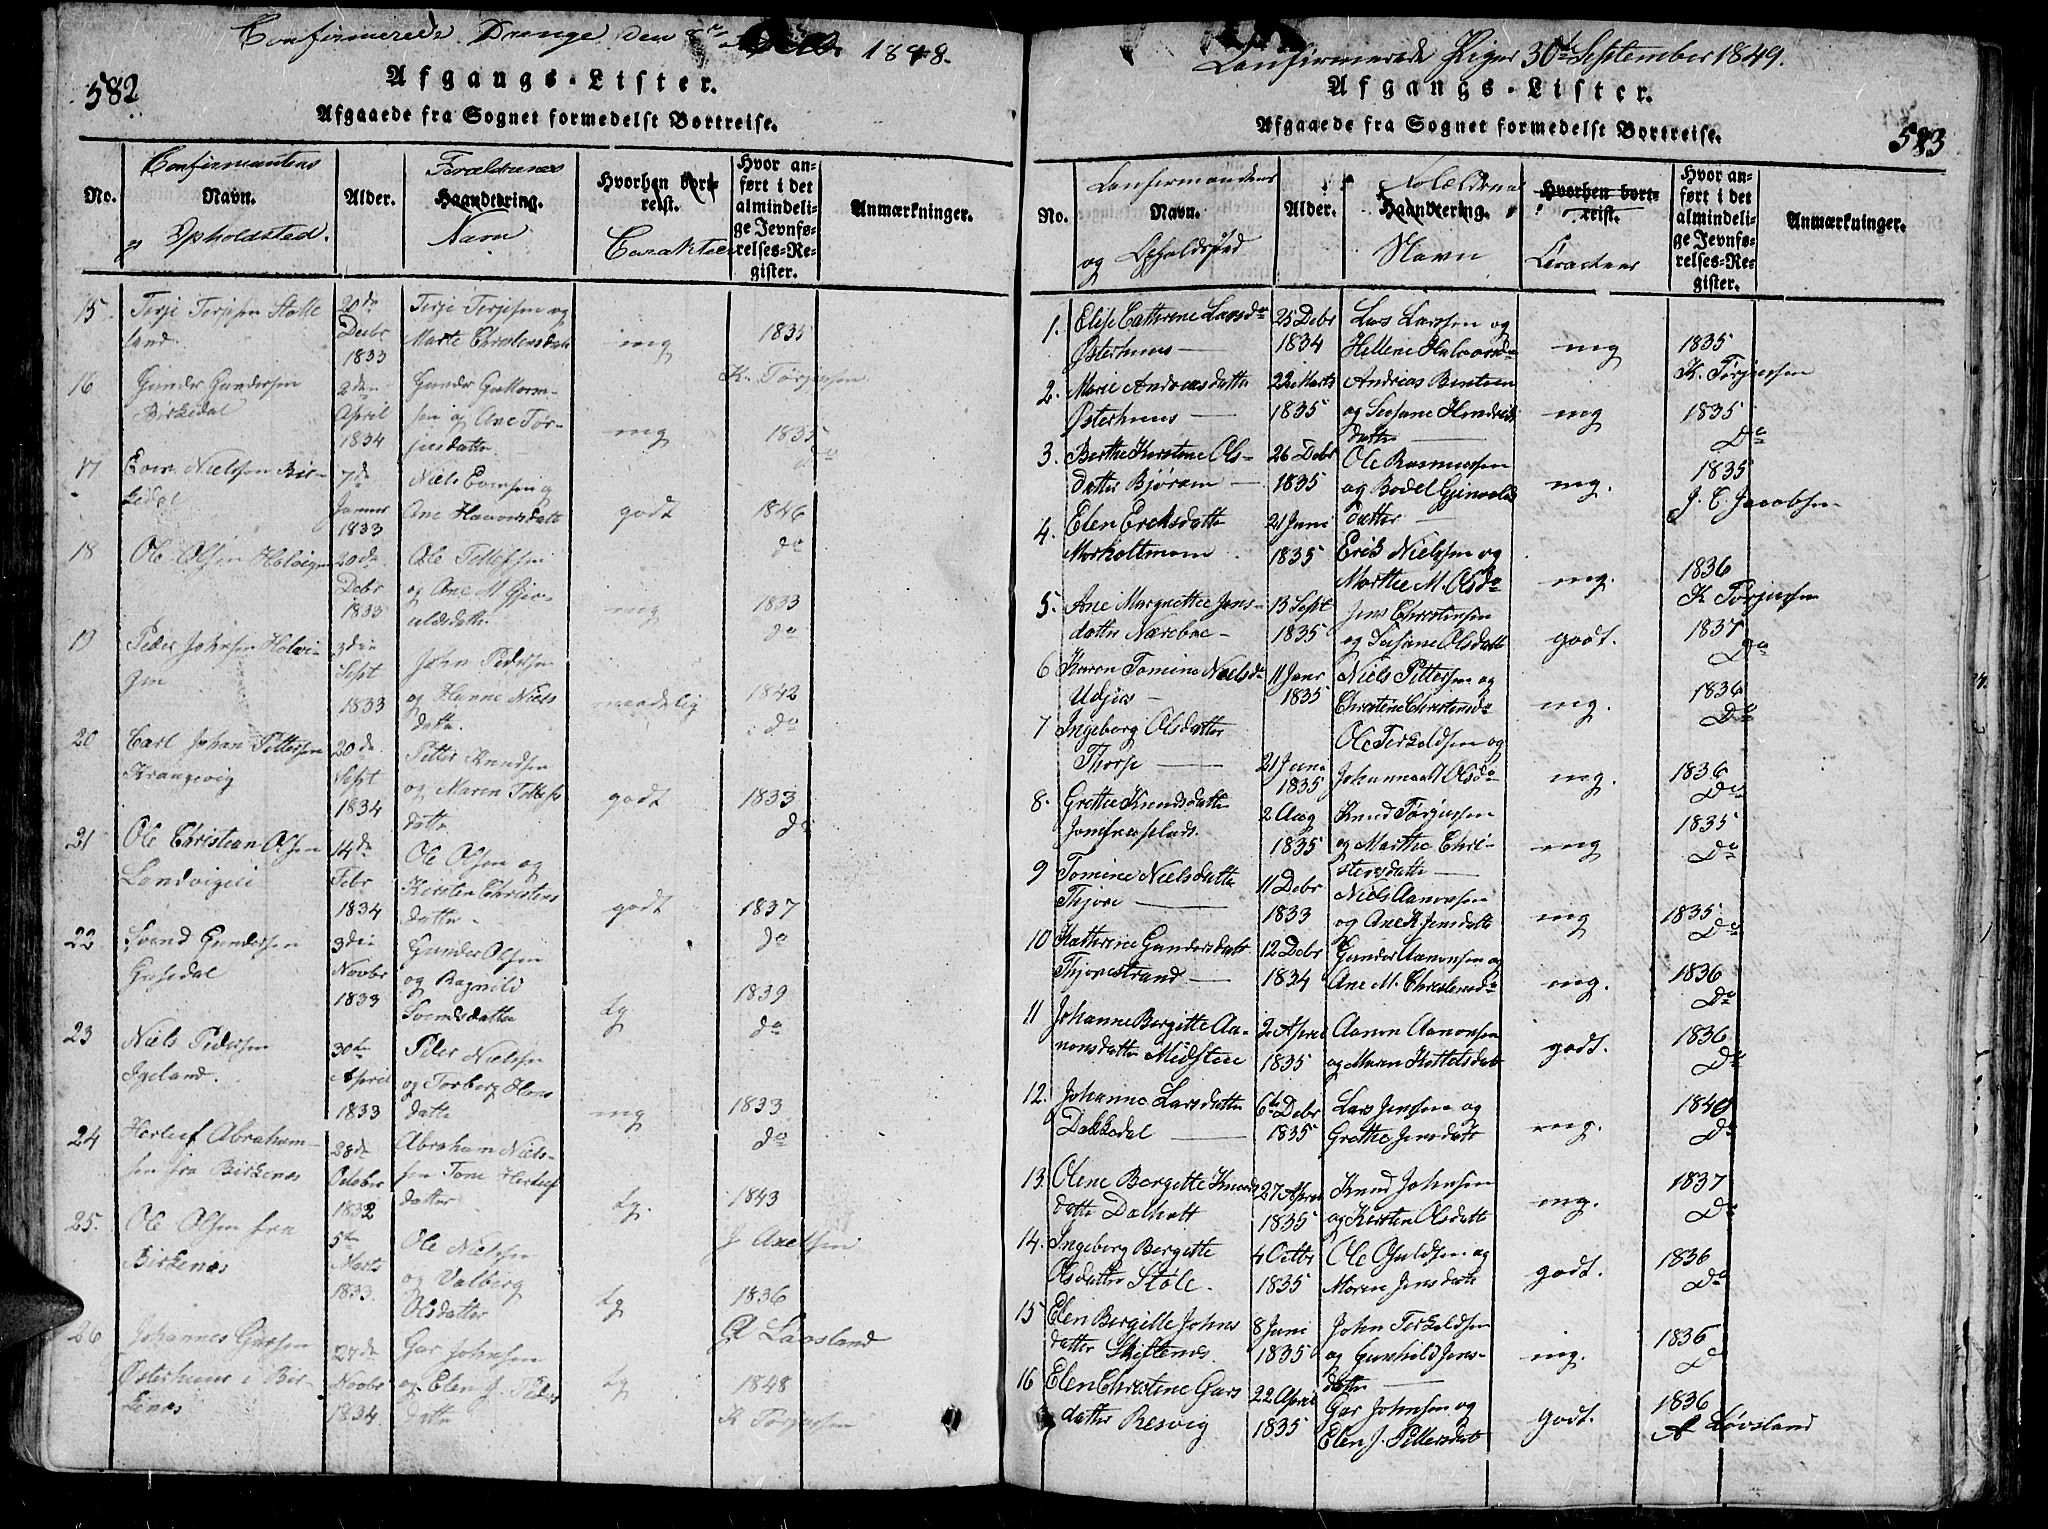 Confirmerede Drenge den 8de 1848.
582
Afgangs-Lister.
Afgaaede fra Sognet formedelst Bortreise.
No.
Confirmantens
Navn.
og Opholdsted.
Alder.
Forældrenes
Haandtering.
Navn
Hvorhen bort-
reist.
Carakter
Hvor an-
ført i det
almindeli-
ge Jevnfø-
relses-Re-
gister.
Anmærkninger.
15. Terje Terjesen Stølle
land.
20de
Decbr
1833
Terje Terjesen og
Marte Christensdatt
mg
1835
K. Tørjusen
16 Gunder Gundersen
Birkedal
2den
April
1834
Gunder Guttorm-
sen og Ane Tør-
jusdatter
mg
1835
do
17 Even Nielsen Bir-
kedal
7de
Januar
1833
Niels Evensen og
Ane Havorsdatt
godt
1846
do
18 Ole Olsen Holvigen
20de
Debr
1833
Ole Tellefsen
og Ane M Gjer-
uldsdatter
mg
1833
do
19 Peder Johnsen Holvi-
gen
3die
Sept
1833
John Pedersen
og Hanne Niels
datter
maadelig
1842
do
20 Carl Johan Pettersen
Krangevig
20de
Sept
1834
Petter Knudsen
og Maren Tellefs
datter
godt
1833
do
21 Ole Christian Olsen
Landvigeie
14de
Febr
1834
Ole Olsen og
Kirsten Christens
datter
godt
1837
do
22 Svend Gundersen
Gusedal
3die
Novbr
1833
Gunder Olsen
og Ragnild
Svendsdatter
tg
1839
do
23 Niels Pedersen
Igeland.
30te
April
1833
Peder Nielsen
og Torberg Hans
datter
mg
1833
do
24 Herleef Abraham-
sen fra Birkenæs
28de
October
1832
Abraham Niels-
sen Tone Herleef
datter
tg.
1843
J Axelsen
25. Ole Olsen fra
Birkenæs
5te
Marts
1833.
Ole Nielsen
og Valberg
Olsdatter
tg
1836
A Løvsland
26 Johannes Garsen
Østerhuus i Bir-
kenæs
27de
Novbr
1834.
Gar Johnsen
og Elen J. Peders
datter
tg
1848
K Tørjusen
Confirmerede Piger 30te September 1849.
Afgangs-Lister.
Afgaaede fra Sognet formedelst Bortreise.
583
No.
Confirmandens
Navn.
og Opholdsted
Alder.
Forældrenes
Haandtering.
Navn
Hvorhen bort-
reist.
Caracteer
Hvor an-
ført i det
almindeli-
ge Jevnfø-
relses-Re-
gister.
Anmærkninger.
1. Elise Cathrine Larsdr
Østerhuus
25 Debr
1834
Lars Larssen og
Hellene Halvorsdr
mg
1835
K. Tørjussen
2. Marie Andreasdatter
Østerhuus
22 Marts
1835
Andreas Bentsen
og Susane Hendriks
datter
mg
1835
Do
3. Berthe Kirstine Ols-
datter Bjøraen
26 Debr
1835
Ole Rasmussen
og Bodel Gjeruolds
datter
mg.
1835
J. C. Jacobsen
4. Elen Ericksdatter
Morholtmoen
21 Juni
1835
Erik Nielssen og
Marthe M. Olsdr
mg.
1836
K Tørjussen
5. Ane Margrethe Jens-
datter Nærebøe
13 Sept
1835
Jens Christensen
og Susane Olsdatt
godt.
1837
Do
6 Karen Tomine Nielsdr
Udgjøs
11 Janr
1835
Niels Pettersen og
Christine Christensdr
mg.
1836
Do
7 Ingeborg Olsdatter
Thorp
21 Juni
1835
Ole Terkeldsen og
Johanna M Olsdr
mg.
1836
Do
8. Grethe Knudsdatter
Jomfraaplads
2 Aug
1835
Knud Tørjussen
og Marthe Chri-
stensdatter
mg
1835
Do
9 Tomine Nielsdatter
Thjøre
11 Debr
1833
Niels Aanonsen
og Ane K Jensdatt
mg
1835
Do
10 Kathrine Gundersdatt
Thjorestrand
12 Debr
1834
Gunder Aanonsen og
Ane M. Christensdr
mg.
1836
Do
11 Johanne Bergitte Aa-
nonsdatter Midsteie
2 April
1835
Aanon Aanonsen
og Maren Kettelsdatt
godt.
1836
Do
12. Johanne Larsdatter
Dakkedal
6te Debr
1835
Lars Jenssen og
Grethe Jensdatt
mg.
1840
Do
13. Olene Bergitte Knuds
datter Dalholt
27 April
1835
Knud Johnsen
og Kirsten Olsdatt
mg.
1837
Do
14. Ingeborg Bergitte
Olsdatter Støle.
4 Octbr
1835
Ole Guldsen og
Maren Jensdatt
godt.
1836
Do
15 Elen Bergitte Johns
datter Skiftenes.
8 Juni
1835
John Terkeldsen
og Gunhild Jens-
datter
mg.
1836
D
16 Elen Christine Gars
datter Resvig
22 April
1835
Gar Johnsen og
Elen J. Pettersdatt
godt.
1836
A Løvsland